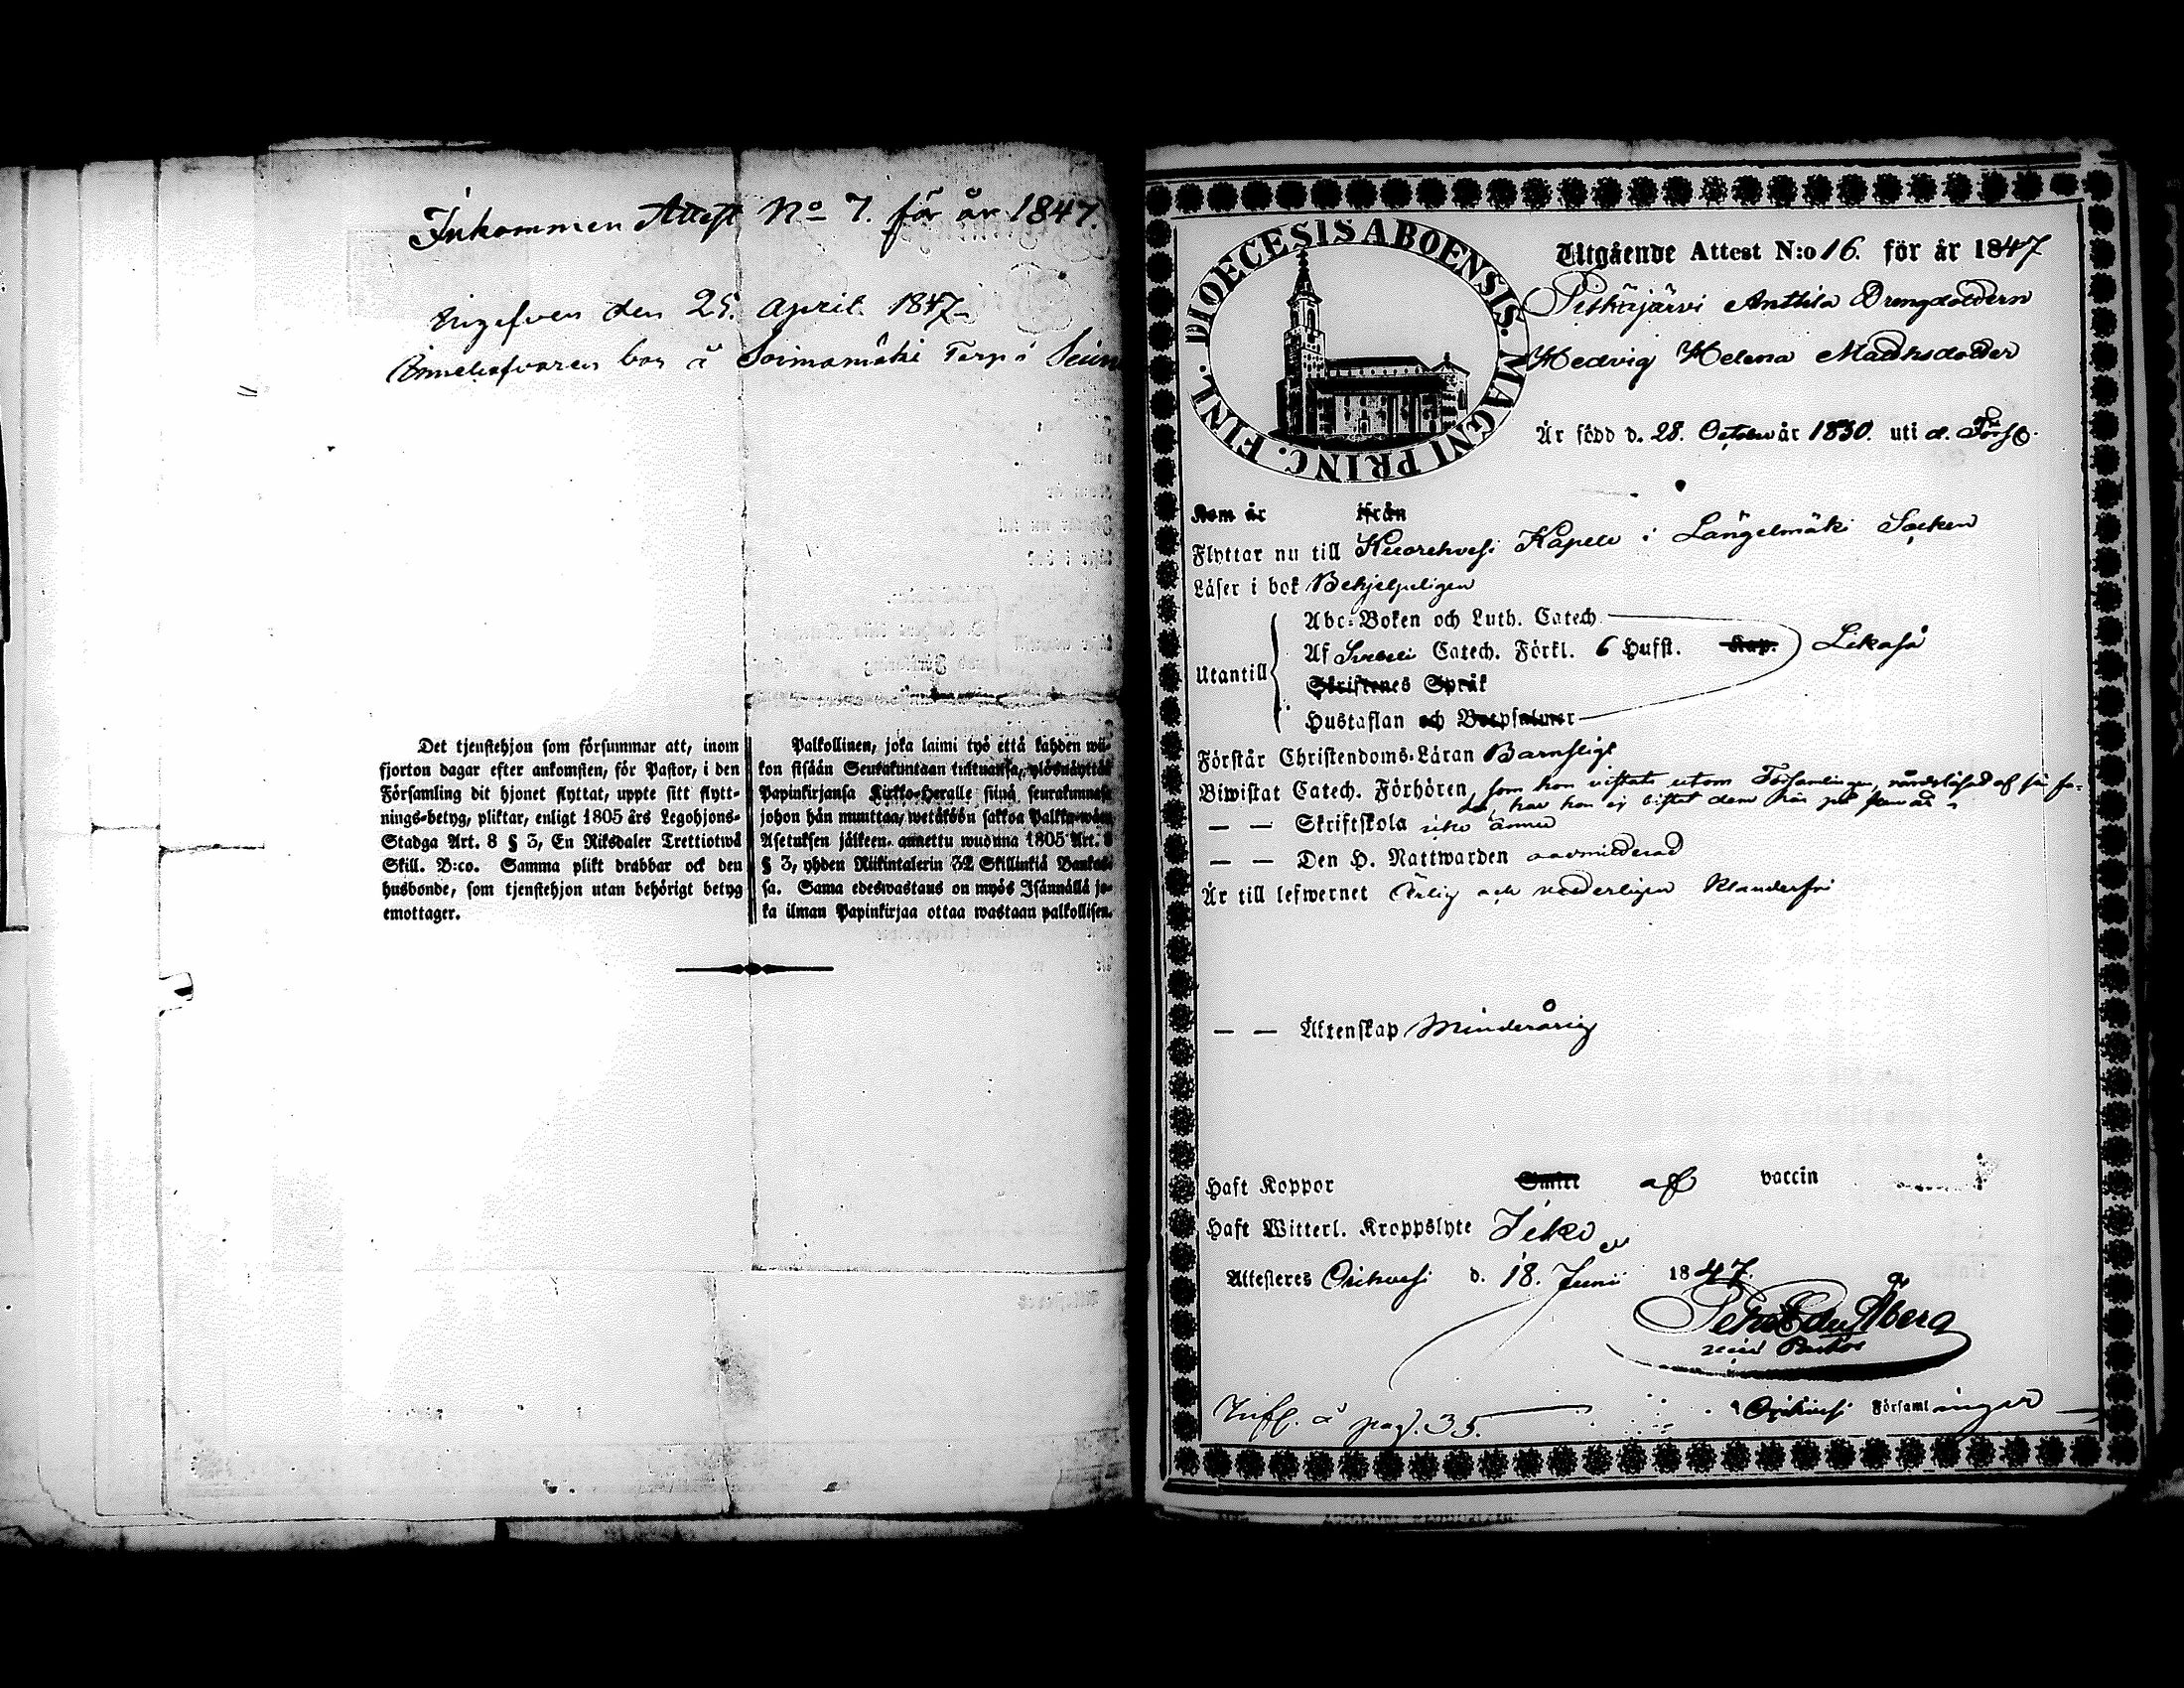 Inkommen Attest No 7. för år 1847.
Ingifven den 25. April. 1847
Innehafvaren bor å Soimamäki Torp i
Det tjenstehjon som försummar att, inom
fjorton dagar efter ankomsten, för Pastor, i den
Församling dit hjonet flyttat, uppte sitt flytt-
nings-betyg, pliktar, enligt 1805 års Legohjons-
Stadga Art. 8 § 3, En Riksdaler Trettiotwå
Skill. B:co. Samma plikt drabbar ock den
husbonde, som tjenstehjon utan behörigt betyg
emottager.
Palkollinen, joka laimi lyö että kahden wii-
kon sisään Seurakuntaan tultuansa, ylösnäyttää
Papinkirjansa Kirkko-Herralle siinä seurakunnasa
johon hän muuttaa, wetäköön sakkoa Palkko-wäen
Asetuksen jälkeen, annettu wuonna 1805 Art. 8
§ 3, yhden Riikintalerin 32 Skillinkiä Bankos-
sa. Sama edeswastaus on myös Isännällä jo-
ka ilman Papinkirjaa ottaa wastaan palkollisen.
DIOECESIS ABOENSIS. MAGNI PRINC. FINL.
Utgående Attest N:o 16. för år 1847
Pitkäjärvi Anttila Drengdottern
Hedvig Helena Mattsdotter
Är född d. 28. October år 1830. uti d. Förs.
Kom år ifrån
Flyttar nu till Kuorehvesi Kapell i Längelmäki Socken
Läser i bok Behjelpeligen
Abc-Boken och Luth. Catech.
Utantill Af Svebelii Catech. Förkl. 6 Hufst. Kap. Likaså
Skriftenes Språk
Hustaflan och Botpsalmer
Förstår Christendoms-Läran Barnsligt
Biwistat Catech. Förhören, som hon vistats utom Församlingen, vårdslösad af sin fa-
der, har hon ej bistat dem här på
— — Skriftskola icke ännu
— — Den H. Nattwarden oadmitterad
Är till lefwernet Ärlig och veterligen klanderfri
— — Äktenskap Minderårig
Haft Koppor Smitt af vaccin
Haft Witterl. Kroppslyte Icke
Attesteres Orihvesi d. 18. Junii 1847.
Åberg
Inf. å pag. 35.
i Orihvesi Församlingar